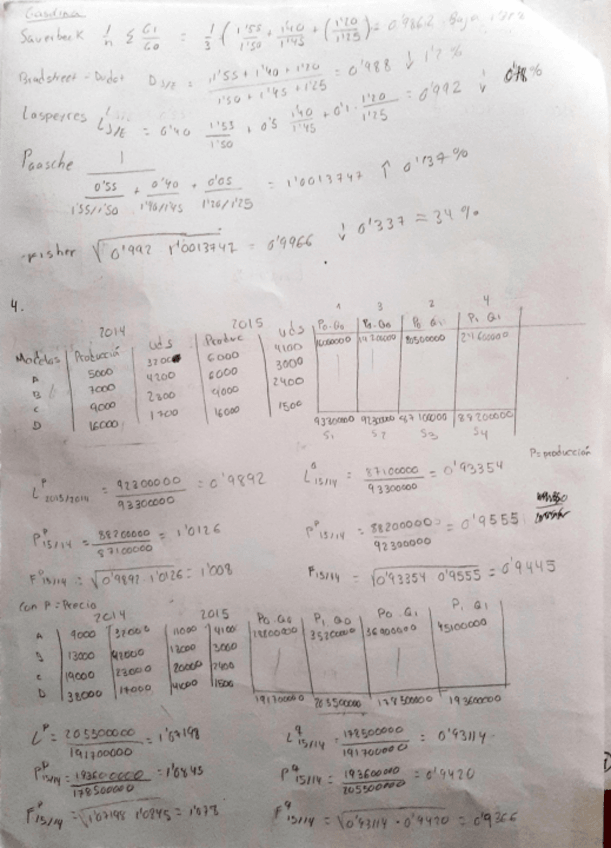 Gasolina
Sauerbeck 1/n Σ G1/G0 = 1/3 (1'55/1'50 + 1'40/1'45 + (1'20/1'25) = 0'9862 Baja
Bradstreet - Dudot D = 1'55 + 1'40 + 1'20 / 1'50 + 1'45 + 1'25 = 0'988 ↓ 1'2 %
Laspeyres L = 0'40 1'55/1'50 + 0'5 1'40/1'45 + 0'1 · 1'20/1'25 = 0'992 ↓ %
Paasche 1 / 0'55/1'55/1'50 + 0'40/1'40/1'45 + 0'05/1'20/1'25 = 1'0013747 ↑ 0'137 %
Fisher √0'992 1'0013742 = 0'9966 ↓ 0'337 = 34 %
4.
2014 2015 1 3 2 4
Modelos Producción Uds Produc Uds P0·Q0 P1·Q0 P0 Q1 P1 Q1
A 5000 6000 4100 20500000 24600000
B 7000 4200 6000 3000
C 9000 2300 9000 2400
D 16000 1700 16000 1500
93300000 92300000 87100000 88200000
S1 S2 S3 S4
P=producción
L^P 2015/2014 = 92300000/93300000 = 0'9892 L^q 15/14 = 87100000/93300000 = 0'93354
P^P 15/14 = 88200000/87100000 = 1'0126 P^P 15/14 = 88200000/92300000 = 0'9555
F^P 15/14 = √0'9892 1'0126 = 1'008 F15/14 = √0'93354 0'9555 = 0'9445
Con P = Precio
2014 2015 P0·Q0 P1·Q0 P0·Q1 P1 Q1
A 9000 11000 4100 35200000 45100000
B 13000 3000
C 19000 23000 20000 2400
D 32000 17000 1500
191700000 205500000 178500000 193600000
L^P = 205500000/191700000 = 1'07198 L^q 15/14 = 178500000/191700000 = 0'93114
P^P 15/14 = 193600000/178500000 = 1'0845 P^q 15/14 = 193600000/205500000 = 0'9420
F^P 15/14 = √1'07198 1'0845 = 1'078 F^q 15/14 = √0'93114 · 0'9420 = 0'9366